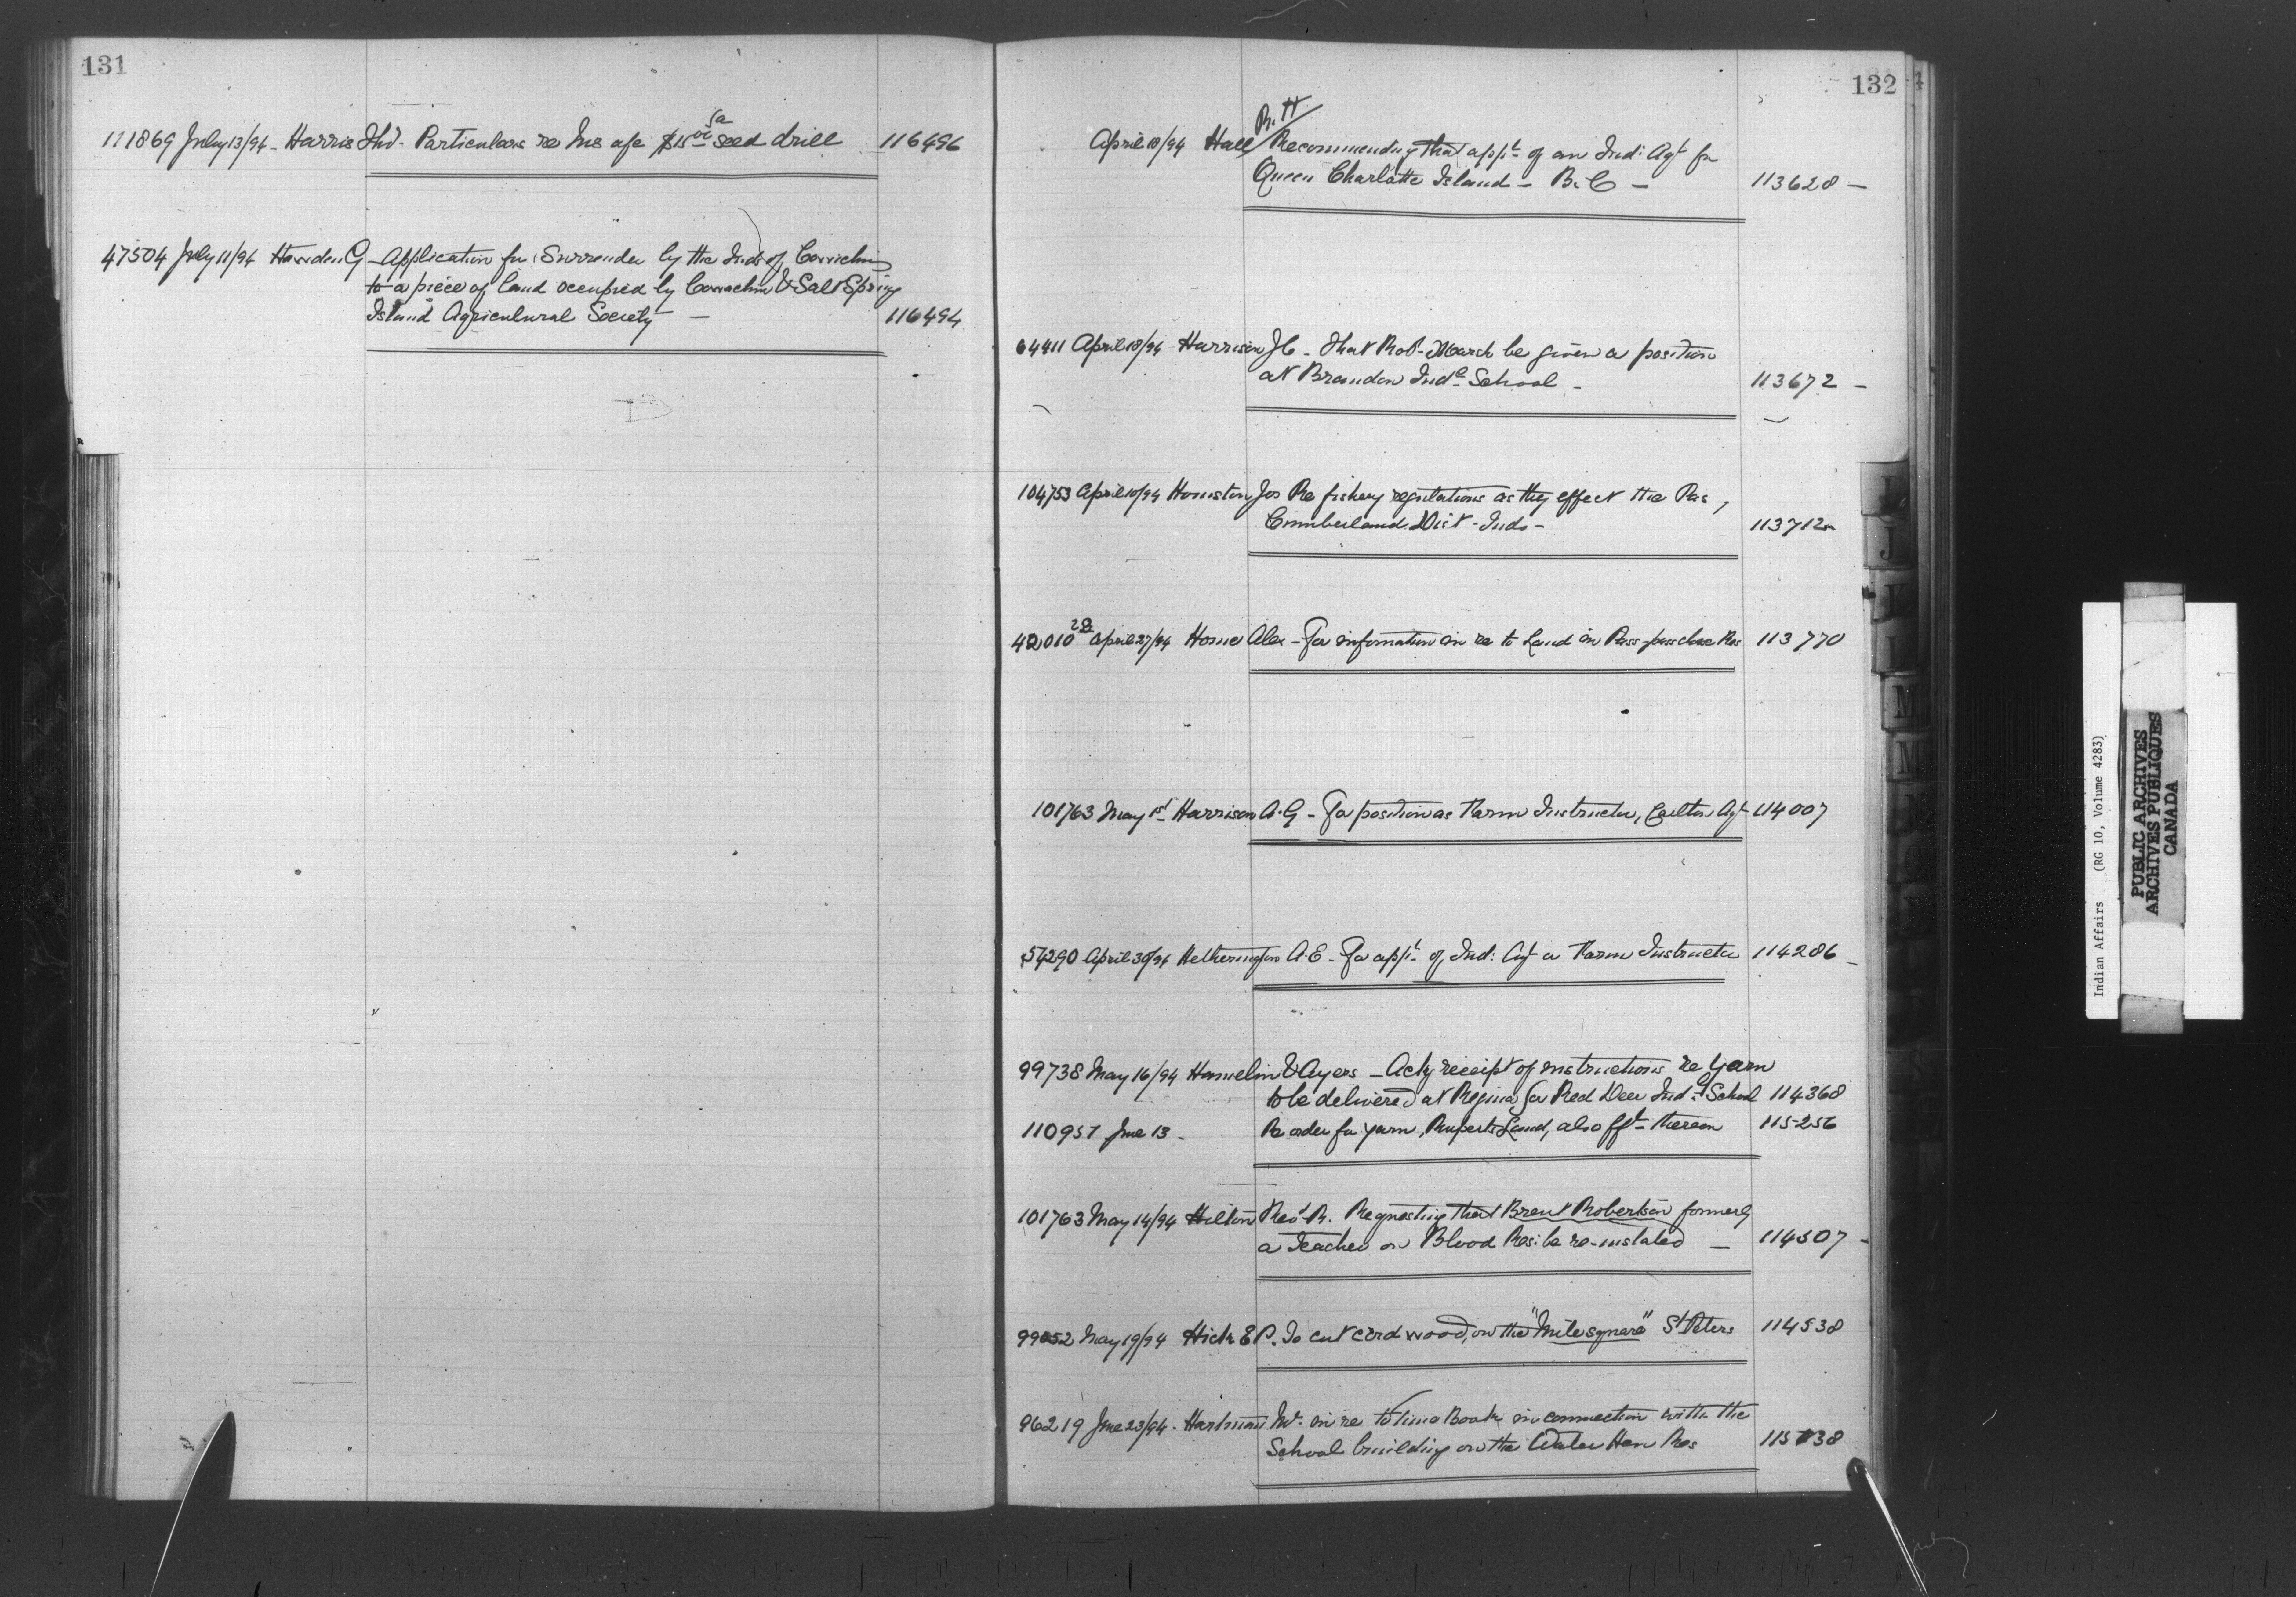 131
111869 July 13/94 - Harris Thos - Particulars re Ins a/c $15 00 sa seed drill 116496
47504 July 11/94 G - Application for Surrender by the Inds of Cowichan
to a piece of land occupied by Cowachin & Salt Spring
Island Agricultural Society - 116494
132
April 18/94 Hall R. H Recommending that appt of an Ind: Agt for
Queen Charlotte Island - B. C - 113628 -
64411 April 18/94 Harrison J C - That Rob- March be given a position
at Brandon Indl School - 113672 -
104753 April 10/94 Houston Jos Re fishery regulations as they effect the Pas,
Cumberland Dist - Inds - 113712
42010 April 27/94 Horne Alex - For information in re to Land in Pass-pass chase Res 113770
101763 May 1st Harrison A. G - For position as Farm Instructor, Carlton Agt 114007
54290 April 30/94 Hetherington A. E - For appt of Ind: Agt or Farm Instructor 114286 -
99738 May 16/94 Hamelin & Ayers - Ackg receipt of instructions re Yarn
to be delivered at Regina for Red Deer Indl School 114368
110957 June 13 - Re order for yarn, Ruperts Land, also thereon 115256
101763 May 14/94 Hilton Revd R. Requesting that Brent Robertson formerly
a Teacher on Blood Res: be re-instated - 114507 -
99052 May 19/94 Hicks E P. To cut cord wood, on the "Mile square" St Peters 114538
96219 June 23/94 - Hartman in re to Time Book in connection with the
School building on the Water Hen Res 115738
Indian Affairs (RG 10, Volume 4283)
PUBLIC ARCHIVES
ARCHIVES PUBLIQUES
CANADA